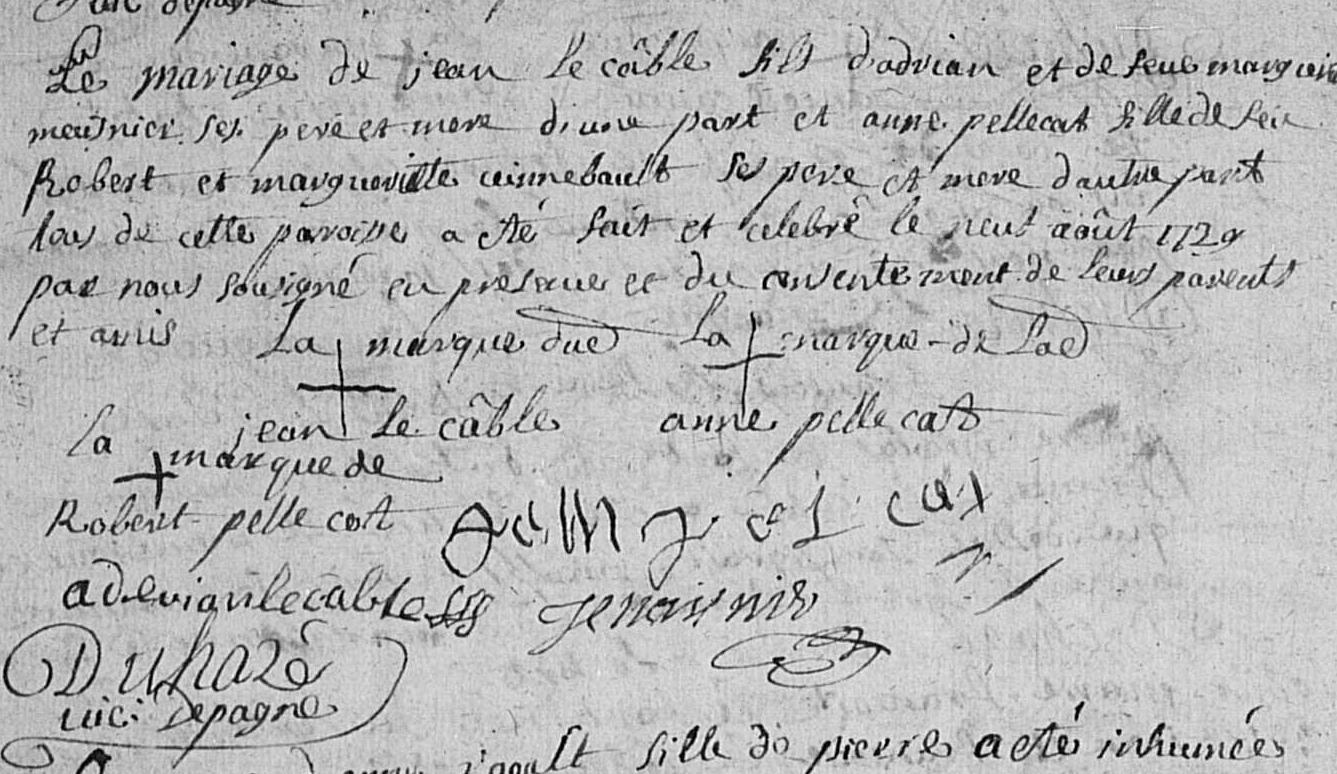 Le mariage de jean le câble fils d'adrian et de feue marguerite
meusnier ses pere et mere d'une part et anne pellecat fille de feu
Robert et margueritte vinnebault ses pere et mere d'autre part
tous de cette paroisse a eté fait et celebré le neuf août 1729
par nous sousigné en presence et du consentement de leurs parents
et amis La marque dud La marque de Lad
jean le câble anne pelle cat
la marque de
Robert pelle cat
aderian le cable
Duhazé
vic: Depagne
fille de pierre a eté inhumée